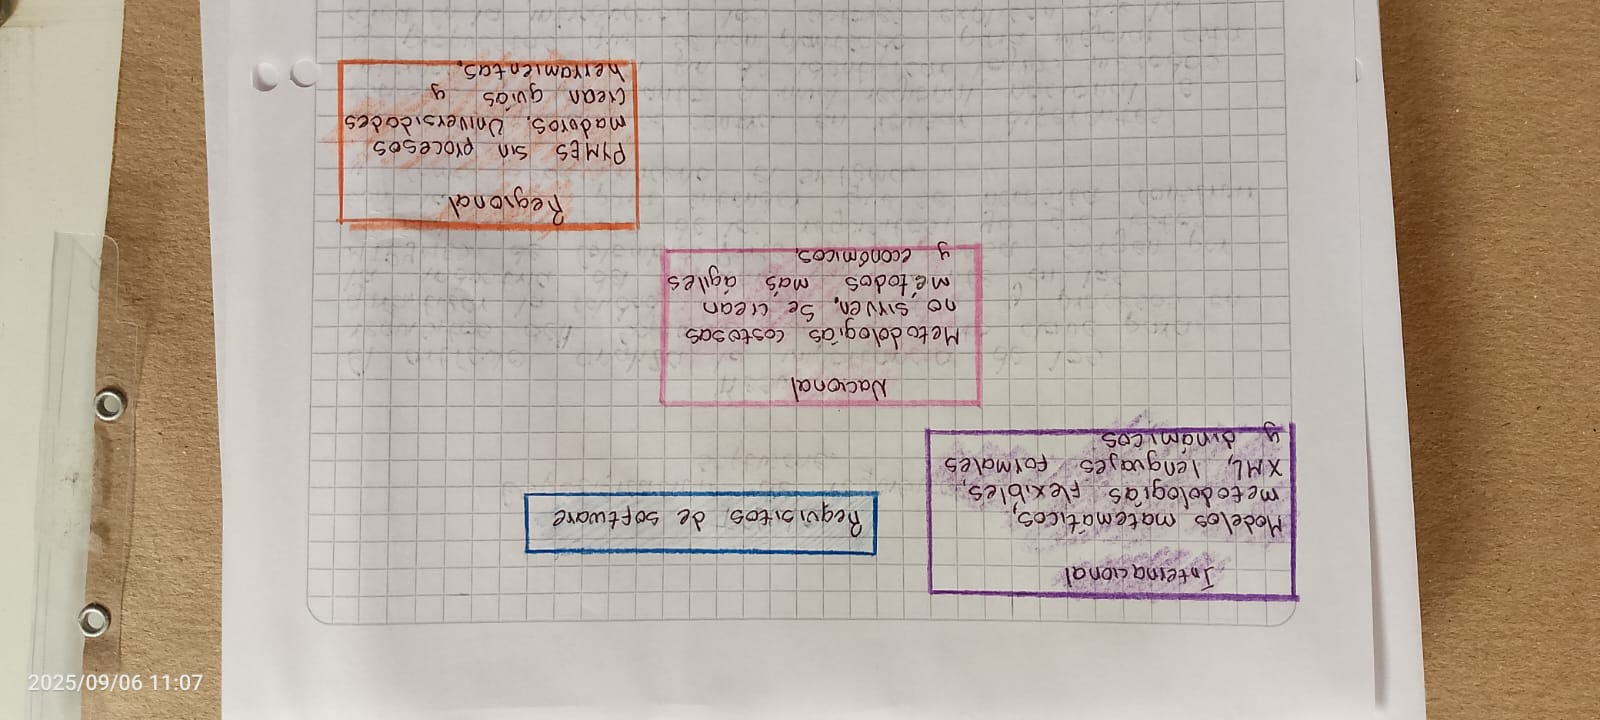 Internacional
Modelos matemáticos,
metodologías flexibles,
XML, lenguajes formales
y dinámicos
Requisitos de software
Nacional
Metodologías costosas
no sirven, se crean
métodos más ágiles
y económicos.
Regional.
PYMES sin procesos
maduros. Universidades
crean guías y
herramientas.
2025/09/06 11:07